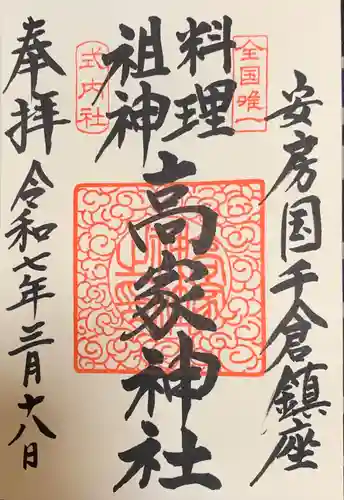 安房国千倉鎮座
全国唯一
料理
祖神
式内社
高家神社
奉拝
令和七年三月十八日